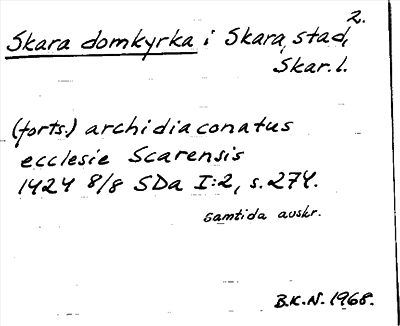 2.
Skara domkyrka i Skara, stad,
Skar. l.
(forts.) archidiaconatus
ecclesie Scarensis
1424 8/8 SDa I:2, s. 274.
samtida avskr.
B.K.N. 1968.